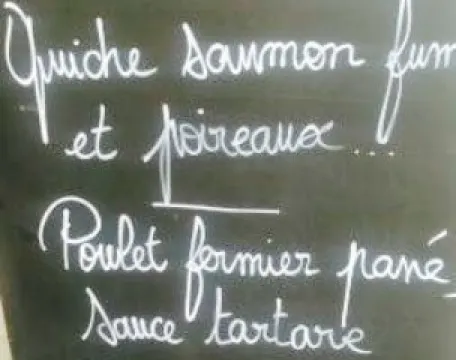 Quiche saumon fum
et poireaux...
Poulet fermier pané
sauce tartare